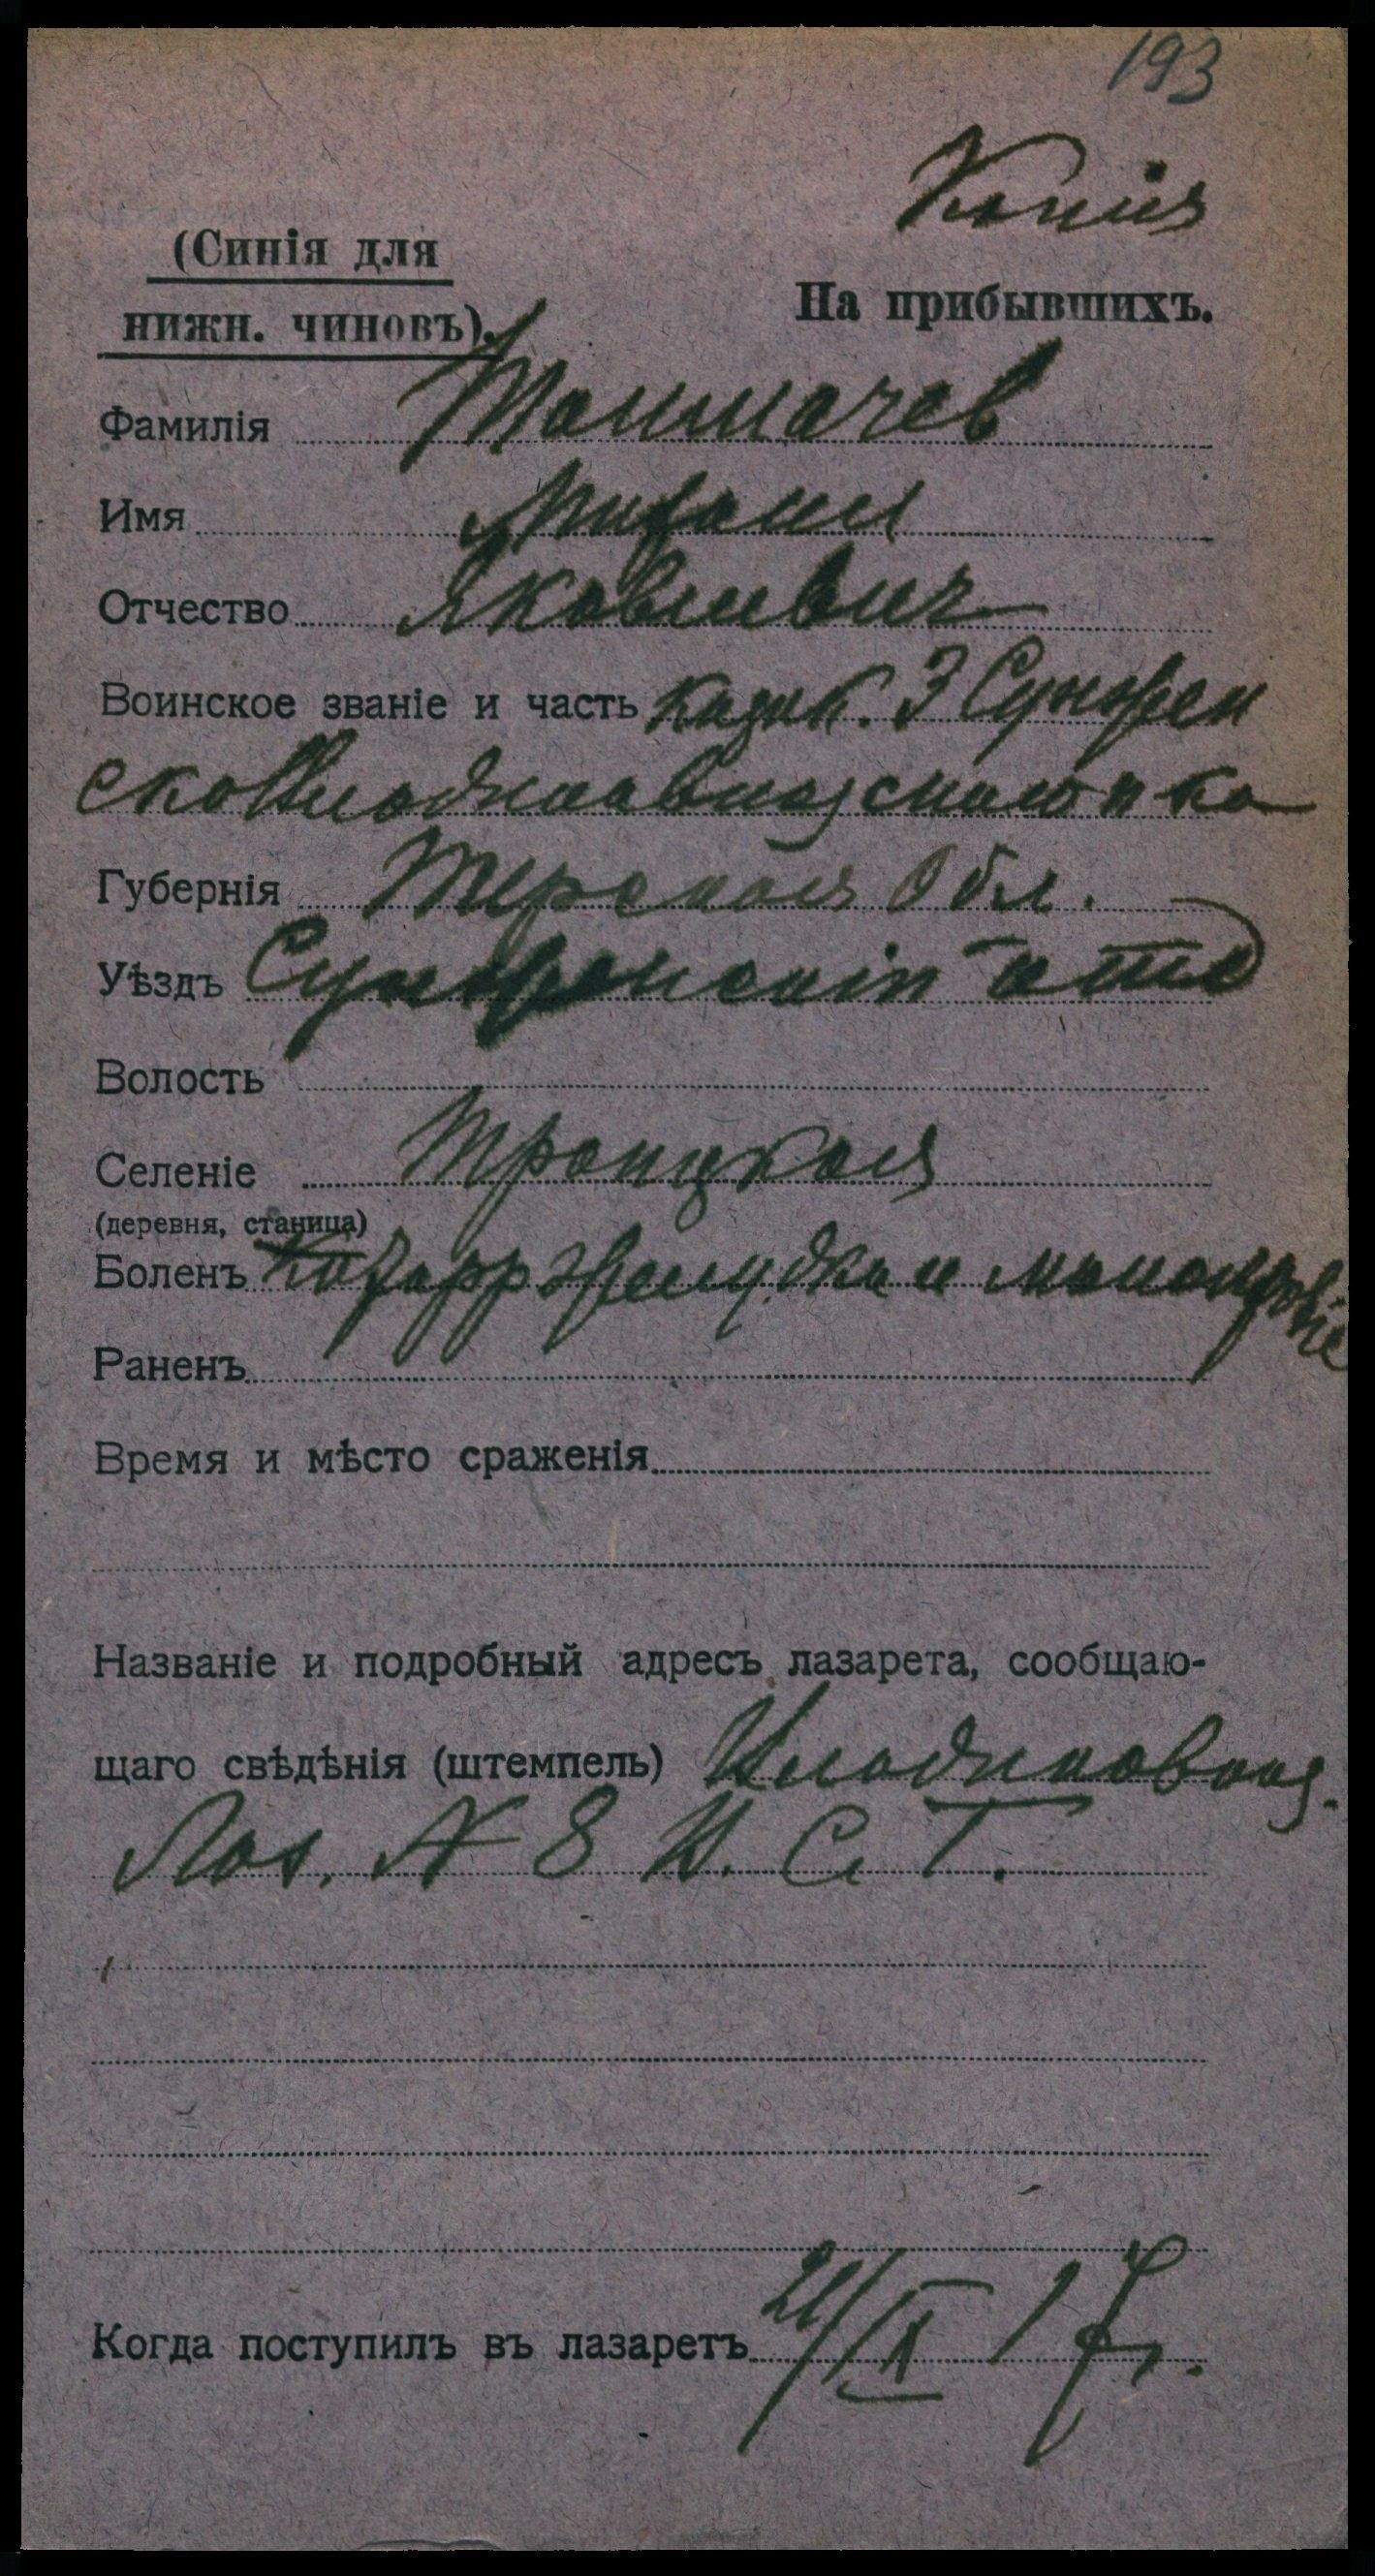 193
Копия
(Синія для
нижн. чиновъ).
На прибывшихъ.
Фамилія Толмачев
Имя Михаил
Отчество Яковлевич
Воинское званіе и часть казак. 3 Сунжен
ско Владикавказскаго п ка
Губернія Терская Обл.
Уѣздъ Сунженскій отд
Волость
Селеніе Троицкая
(деревня, станица)
Боленъ Катарр желудка и
Раненъ
Время и мѣсто сраженія
Названіе и подробный адресъ лазарета, сообщаю-
щаго свѣдѣнія (штемпель) Владикавказ.
Лаз. № 8 В. С. Г.
Когда поступилъ въ лазаретъ 21/IX 17 г.